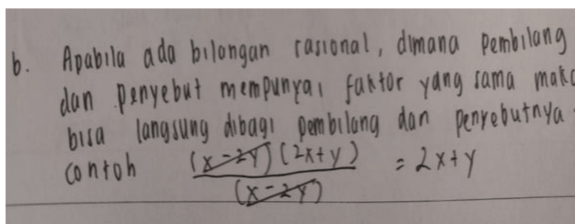 b. Apabila ada bilongan rasional, dimana pembilang
dan penyebut mempunyai faktor yang sama maka
bisa langsung dibagi pembilang dan penyebutnya.
contoh (x-2y)(2x+y) = 2x+y
(x-2y)